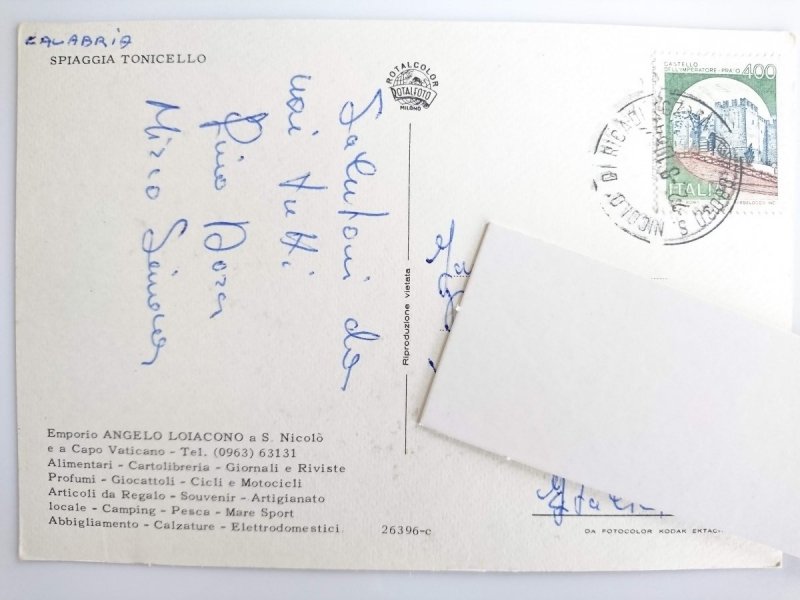 CALABRIA
SPIAGGIA TONICELLO
Salutoni da
voi tutti
Pino
Mirco
ROTALCOLOR
ROTALFOTO
MILANO
Riproduzione vietata
CASTELLO
DELL'IMPERATORE - PRATO 400
ITALIA
S. NICOLO' DI RICADI
Emporio ANGELO LOIACONO a S. Nicolò
e a Capo Vaticano - Tel. (0963) 63131
Alimentari - Cartolibreria - Giornali e Riviste
Profumi - Giocattoli - Cicli e Motocicli
Articoli da Regalo - Souvenir - Artigianato
locale - Camping - Pesca - Mare Sport
Abbigliamento - Calzature - Elettrodomestici.
26396-c
DA FOTOCOLOR KODAK EKTAC